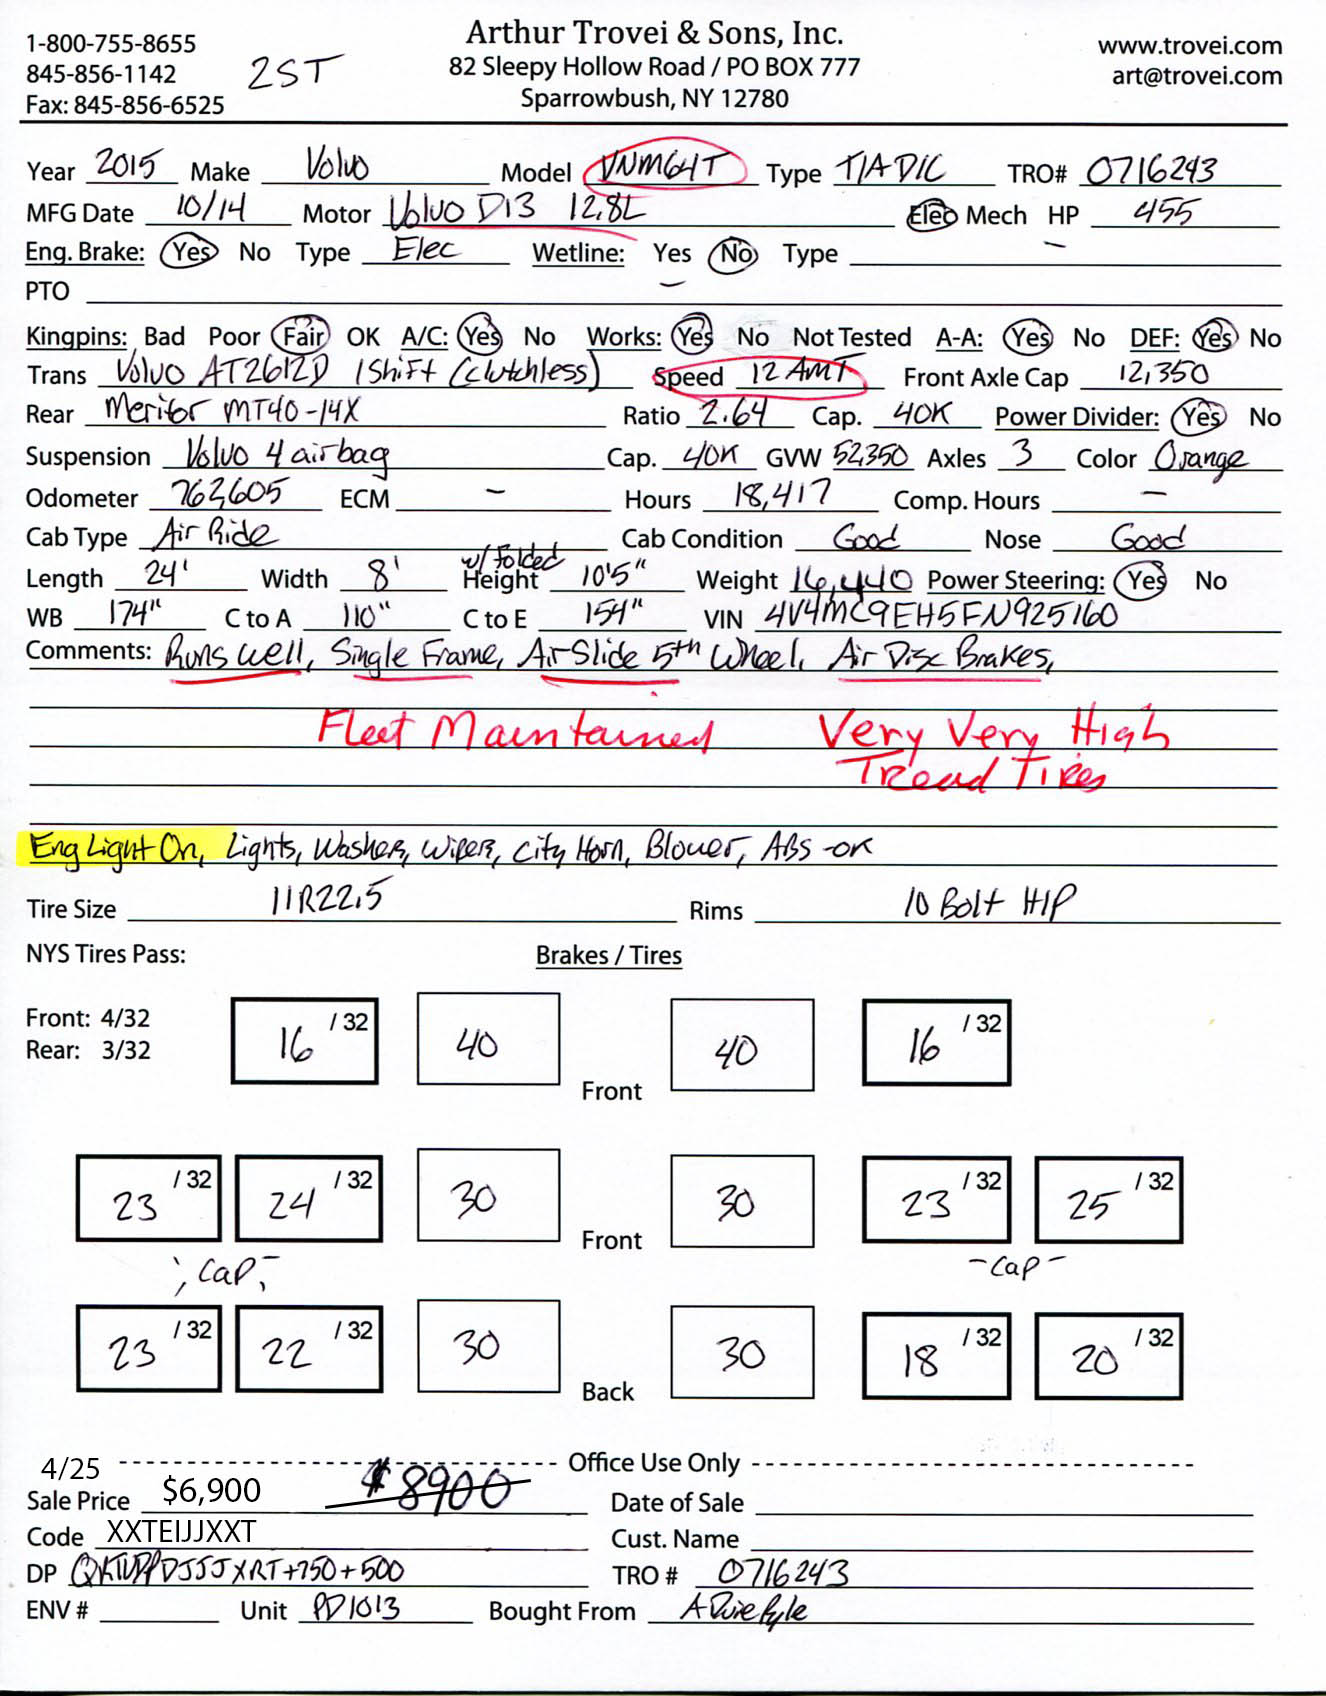 Arthur Trovei & Sons, Inc.
1-800-755-8655 82 Sleepy Hollow Road / PO BOX 777 www.trovei.com
845-856-1142 2ST Sparrowbush, NY 12780 art@trovei.com
Fax: 845-856-6525
Year 2015 Make Volvo Model VNM64T Type T/A D/C TRO# 0716243
MFG Date 10/14 Motor Volvo D13 12.8L Elec Mech HP 455
Eng. Brake: Yes No Type Elec Wetline: Yes No Type
PTO
Kingpins: Bad Poor Fair OK A/C: Yes No Works: Yes No Not Tested A-A: Yes No DEF: Yes No
Trans Volvo AT2612D IShift (Clutchless) Speed 12 AMT Front Axle Cap 12,350
Rear Meritor MT40-14X Ratio 2.64 Cap. 40K Power Divider: Yes No
Suspension Volvo 4 airbag Cap. 40K GVW 52,350 Axles 3 Color Orange
Odometer 762,605 ECM - Hours 18,417 Comp. Hours -
Cab Type Air Ride Cab Condition Good Nose Good
Length 24' Width 8' w/ Folded Height 10'5" Weight 16,440 Power Steering: Yes No
WB 174" C to A 110" C to E 154" VIN 4V4MC9EH5FN925160
Comments: Runs well, Single Frame, Air Slide 5th Wheel, Air Disc Brakes,
Fleet Maintained Very Very High
Tread Tires
Eng Light On, Lights, Washer, Wiper, City Horn, Blower, ABS -OK
Tire Size 11R22.5 Rims 10 Bolt H/P
NYS Tires Pass: Brakes / Tires
Front: 4/32
Rear: 3/32
16 /32 40 Front 40 16 /32
23 /32 24 /32 30 Front 30 23 /32 25 /32
Cap - Cap -
23 /32 22 /32 30 Back 30 18 /32 20 /32
4/25 Office Use Only
Sale Price $6,900 $8900 Date of Sale
Code XXTEIJJXXT Cust. Name
DP +750+500 TRO # 0716243
ENV # Unit PD1013 Bought From